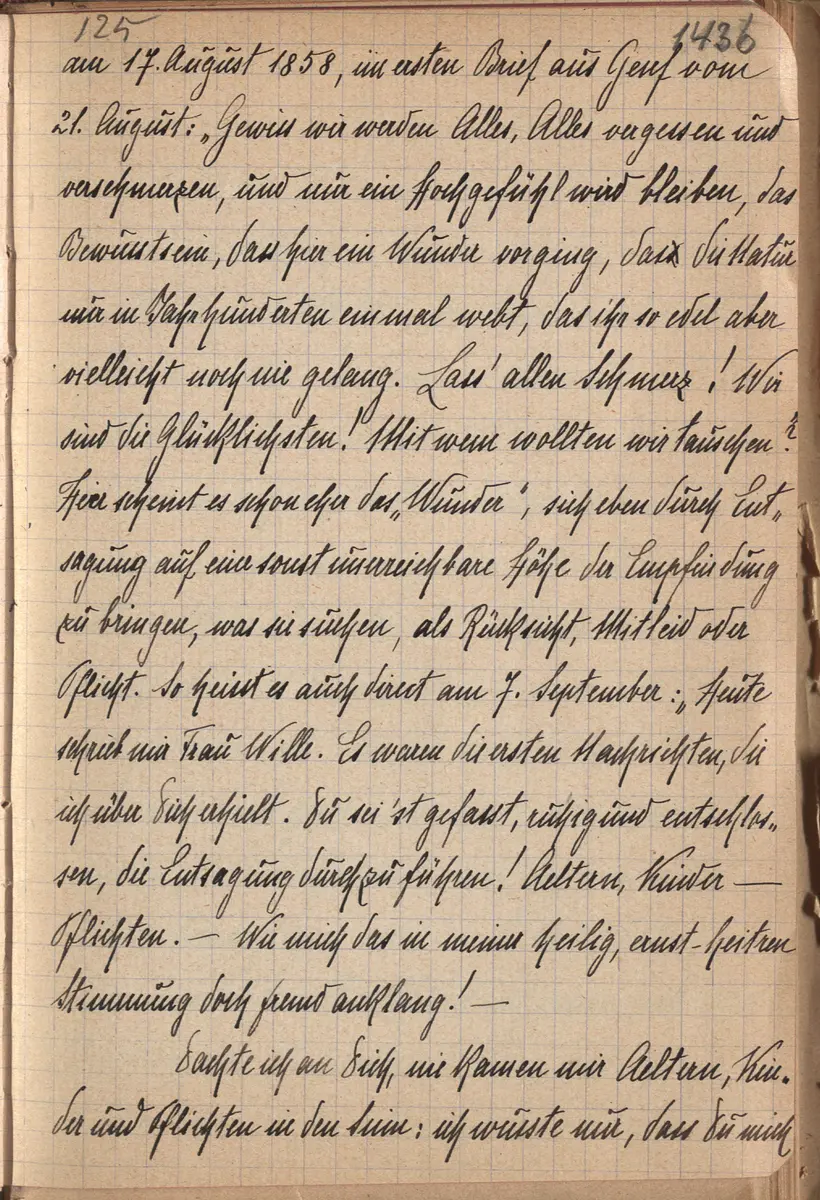 125 1436
am 17. August 1858, im ersten Brief aus Genf vom
21. August: „Gewiss wir werden Alles, Alles vergessen und
verschmerzen, und nur ein Hochgefühl wird bleiben, das
Bewusstsein, dass hier ein Wunder vorging, das die Natur
nur in Jahrhunderten einmal webt, das ihr so edel aber
vielleicht noch nie gelang. Lass' allen Schmerz! Wir
sind die Glücklichsten! Mit wem wollten wir tauschen?"
Hier scheint es schon eher das „Wunder", sich eben durch Ent„
sagung auf eine sonst unerreichbare Höhe der Empfindung
zu bringen, was sie suchen, als Rücksicht, Mitleid oder
Pflicht. So heisst es auch direct am 7. September: „Heute
schrieb mir Frau Wille. Es waren die ersten Nachrichten, die
ich über Dich erhielt. Du sei'st gefasst, ruhig und entschlos„
sen, die Entsagung durchzuführen! Aeltern, Kinder —
Pflichten. — Wie mich das in meiner heilig, ernst-heitren
Stimmung doch fremd anklang! —
Dachte ich an Dich, nie kamen mir Aeltern, Kin„
der und Pflichten in den Sinn: ich wusste nur, dass Du mich